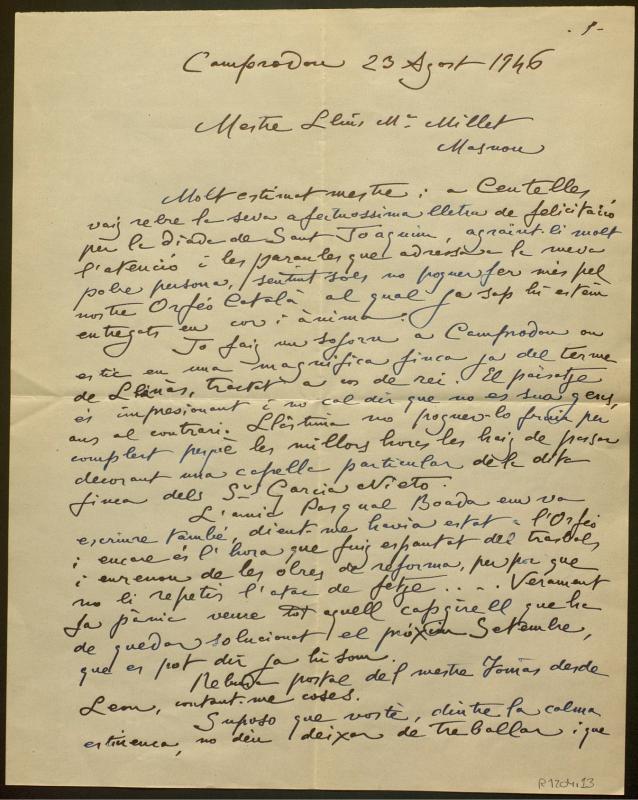 - 1 -
Camprodon 23 Agost 1946
Mestre Lluis Mª Millet
Masnou
Molt estimat mestre: a Centelles
vaig rebre la seva afectuossima lletra de felicitació
per la diada de Sant Joaquim, agraint-li molt
l'atenció i les paraules que adressava la meva
pobre persona, sentint sols no poguer fer més pel
nostre Orfeó Català al qual ja sap hi estèm
entregats en cor i ànima.
Jo faig un sojorn a Camprodon on
estic en una magnifica finca ja del terme
de Llanàs, tractat a cos de rei. El païsatge
és impresionant i no cal dir que no es sua gens,
ans al contrari. Llàstima no poguer-lo fruir per
complert perquè les millors hores les haig de passar
decorant una capella particular de la dita
finca dels Srs Garcia Nieto.
L'amic Pasqual Boada em va
escriure també, dient-me havia estat a l'Orfeó
i encare és l'hora que fuig espantat del trasbals
i enrenou de les obres de reforma, per por que
no li repetís l'atac de fetge.... Verament
fa pànic veure tot aquell capgirell que ha
de quedar solucionat el próxim Setembre,
que es pot dir ja hi som.
Rebuda postal del mestre Tomàs desde
Leon, contant-me coses.
Suposo que vostè, dintre la calma
estiuenca, no deu deixar de treballar i que
R1204.13